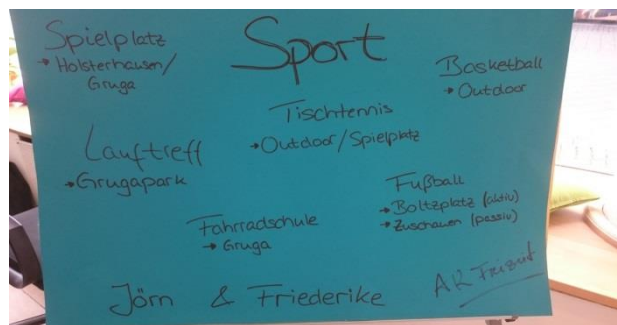 Spielplatz
→ Holsterhausen/
Gruga
Sport
Basketball
→ Outdoor
Tischtennis
→ Outdoor/Spielplatz
Lauftreff
→ Grugapark
Fußball
→ Boltzplatz (aktiv)
→ Zuschauen (passiv)
Fahrradschule
→ Gruga
Jörn & Friederike
AK Freizeit